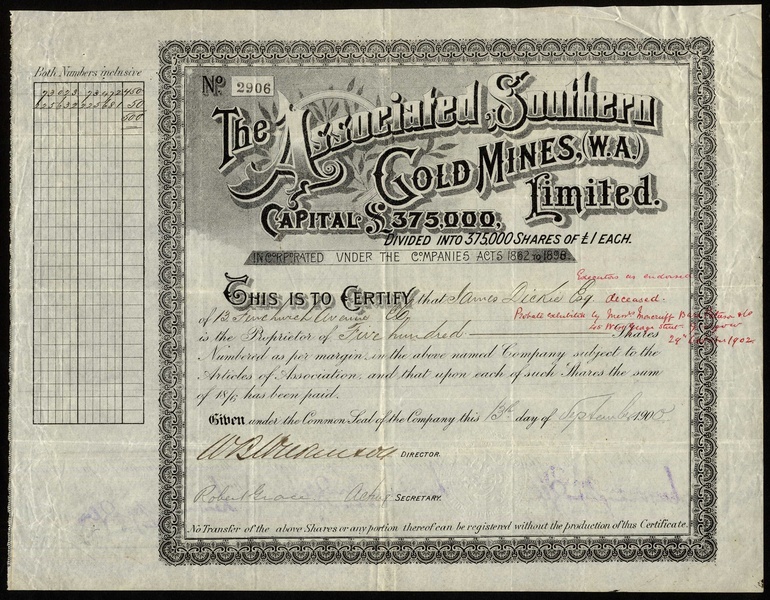 Both Numbers inclusive
73023 73472 450
225632 225681 50
500
No. 2906
The Associated Southern
Gold Mines, (W.A.)
Limited.
Capital £375,000,
Divided into 375,000 Shares of £1 each.
Incorporated under the Companies Acts 1862 to 1898.
Executors as endorsed
This is to Certify that James Dickie Esq deceased.
of 13 Fenchurch Avenue
Probate exhibited by Messrs Moncrieff
45 West George Street
is the Proprietor of Five hundred Shares
1902
Numbered as per margin, in the above named Company subject to the
Articles of Association, and that upon each of such Shares the sum
of 18/- has been paid.
Given under the Common Seal of the Company this 13th day of September 1900
DIRECTOR.
Robert SECRETARY.
No Transfer of the above Shares or any portion thereof can be registered without the production of this Certificate.